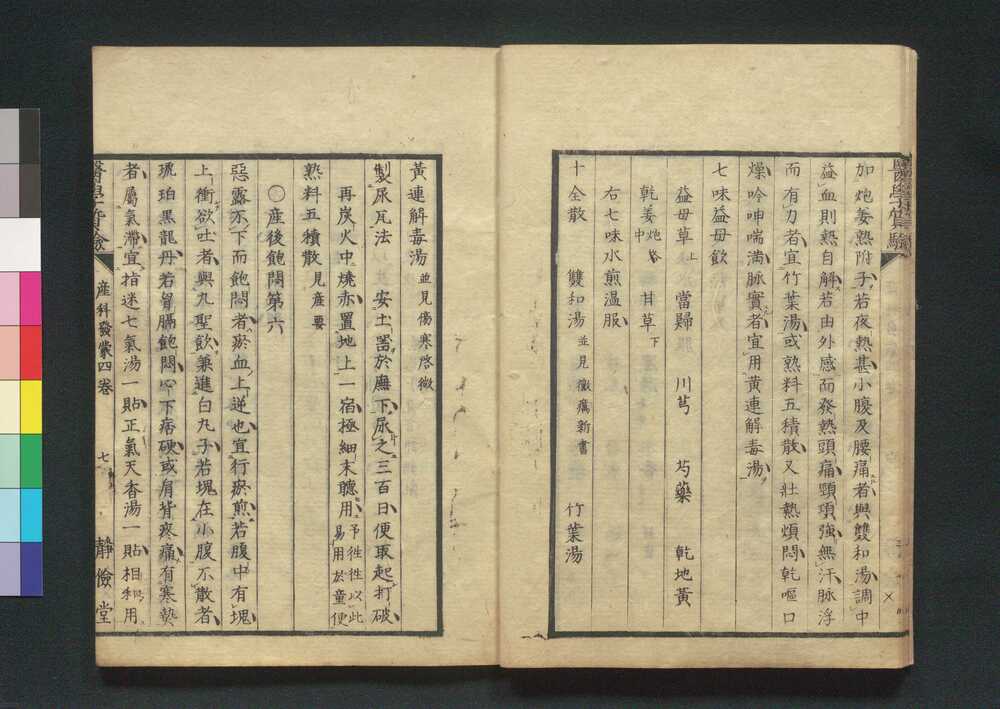 加炮姜熟附子若夜熱甚小腹及腰痛者與雙和湯調中
益血則熱自解若由外感而發熱頭痛頸項強無汗脉浮
而有力者宜竹葉湯或熟料五積散又壯熱煩悶乾嘔口
燥吟呻喘満脉實者宜用黄連解毒湯
七味益母飲
益母草上 當歸 川芎 芍藥 乾地黄
乾姜炮各中 甘草下
右七味水煎温服
十全散 雙和湯並見徴癘新書 竹葉湯
黄連解毒湯並見傷寒啓微
製尿瓦法 安土器於廡下尿之三百日便取起打破
再炭火中燒赤置地上一宿極細末聽用予往往以此易用於童便
熟料五積散見産要
〇産後飽悶第六
惡露不下而飽悶者瘀血上逆也宜行瘀煎若腹中有塊
上衝欲吐者與九聖飲兼進白丸子若塊在小腹不散者
琥珀黒龍丹若胃膈飽悶心下痞硬或肩背疼痛有寒熱
者屬氣滯宜指迷七氣湯一貼正氣天香湯一貼相間用
醫學質驗
産科發蒙四卷
七
静儉堂